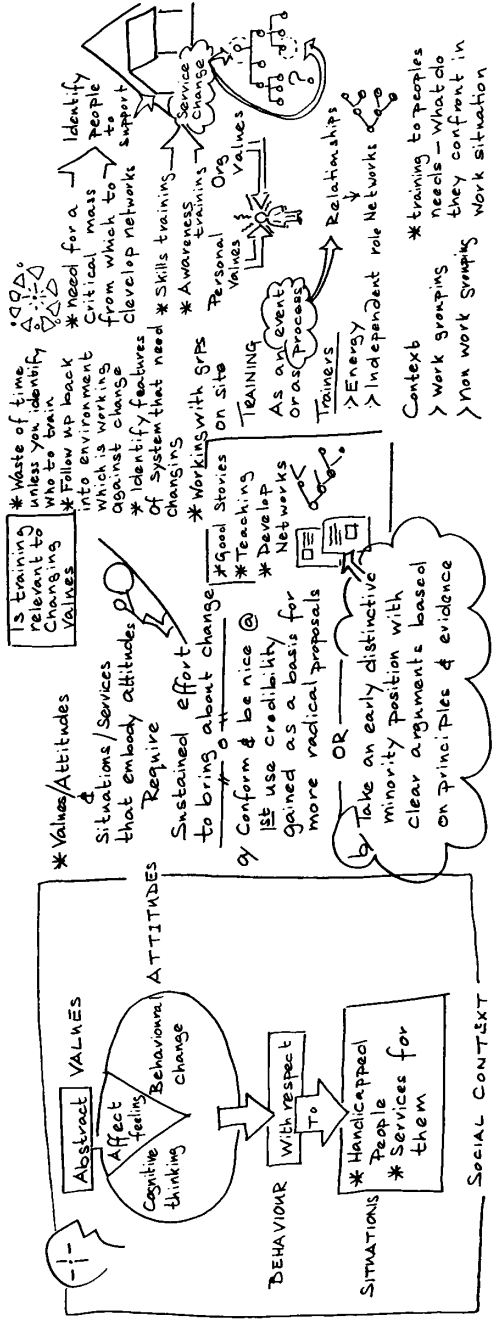 Abstract VALUES
Affect
feeling
Cognitive
thinking
Behavioural
change
ATTITUDES
BEHAVIOUR
With respect
TO
SITUATIONS
* Handicapped
People
* Services for
them
SOCIAL CONTEXT
Is training
relevant to
Changing
Values
* Values/Attitudes
&
Situations/Services
that embody attitudes
Require
Sustained effort
to bring about change
a/ Conform & be nice @
1st use credibility
gained as a basis for
more radical proposals
OR
b/ Take an early distinctive
minority position with
clear arguments based
on principles & evidence
* Waste of time
unless you identify
who to train
* Follow up back
into environment
which is working
against change
* Identify features
of system that need
changing
* Working with grps
on site
* Good Stories
* Teaching
* Develop
Networks
* need for a
Critical mass
from which to
develop networks
Identify
people
to
support
* Skills training
* Awareness
training
Service
change
?
Personal
Values
Org
Values
TRAINING
As an event
or as process
Trainers
> Energy
> Independent role
Relationships
Networks
Context
> Work grouping
> non work grouping
* training to peoples
needs – What do
they confront in
work situation